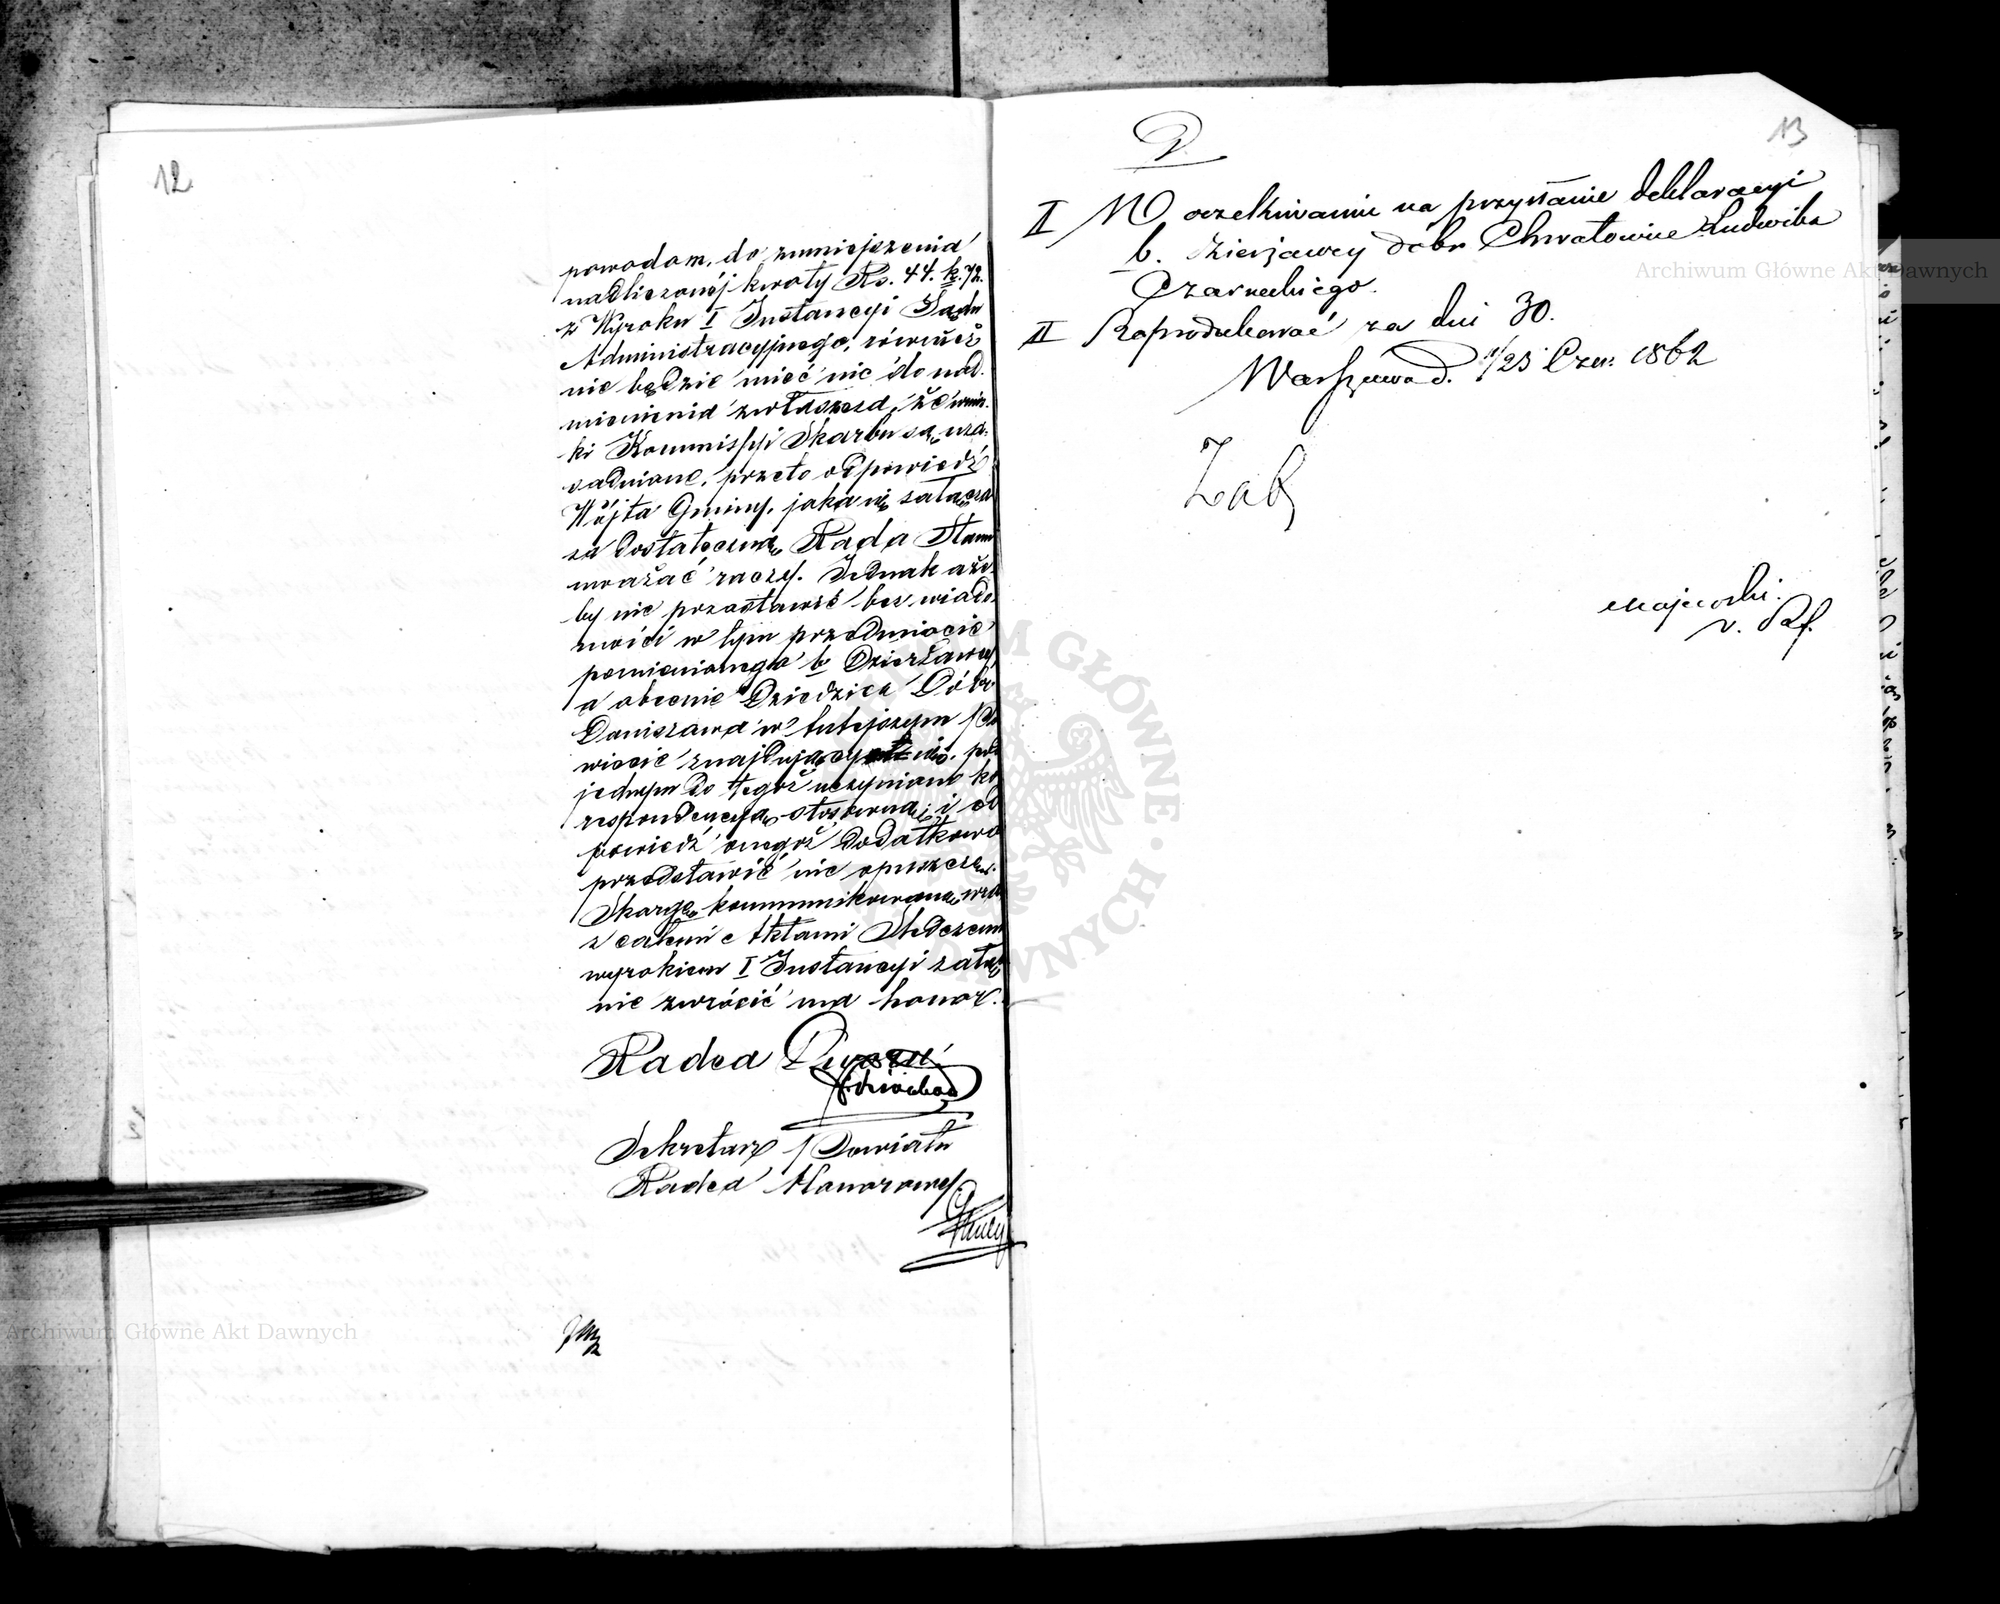 12
powodom, do zmniejszenia
nadliczonéj kwoty Rs. 44. k. 72.
z Wyroku I Instancyi Sądu
Administracyjnego, również
nie będzie mieć nic do nad-
mienienia zwłaszcza, że wnios-
ki Kommissyi Skarbu są uza-
sadnione, przeto odpowiedź
Wójta Gminy, jaka się załącza
za dostateczną Rada Stanu
uważać raczy. Jednak aże-
by nie pozostawić bez wiado-
mości w tym przedmiocie
pomienionego b Dzierżawcy
a obecnie Dziedzica Dóbr
Daniszewa w tutejszym Po
wiecie znajdującym się, pod
jednym do tegoż uczyniono ko
respondencyą stosowną i od
powiedź onegoż dodatkowo
przedstawić nie opuszcza.
Skargę kommunikowaną wraz
z całemi Aktami Śledczemi
wyrokiem I Instancyi załą
nie zwrócić ma honor.
Radca
Sekretarz Powiatu
Radca Honorowy
13
D
II W oczekiwaniu na przysłanie deklaracyi
b. dzierżawcy dóbr Chwałowice Ludwika
Czarneckiego.
II Reprodukować za dni 30.
Warszawa d. 11/23 Czer. 1862
Majewski
v. Ref.
Archiwum Główne Akt Dawnych
Archiwum Główne Akt Dawnych